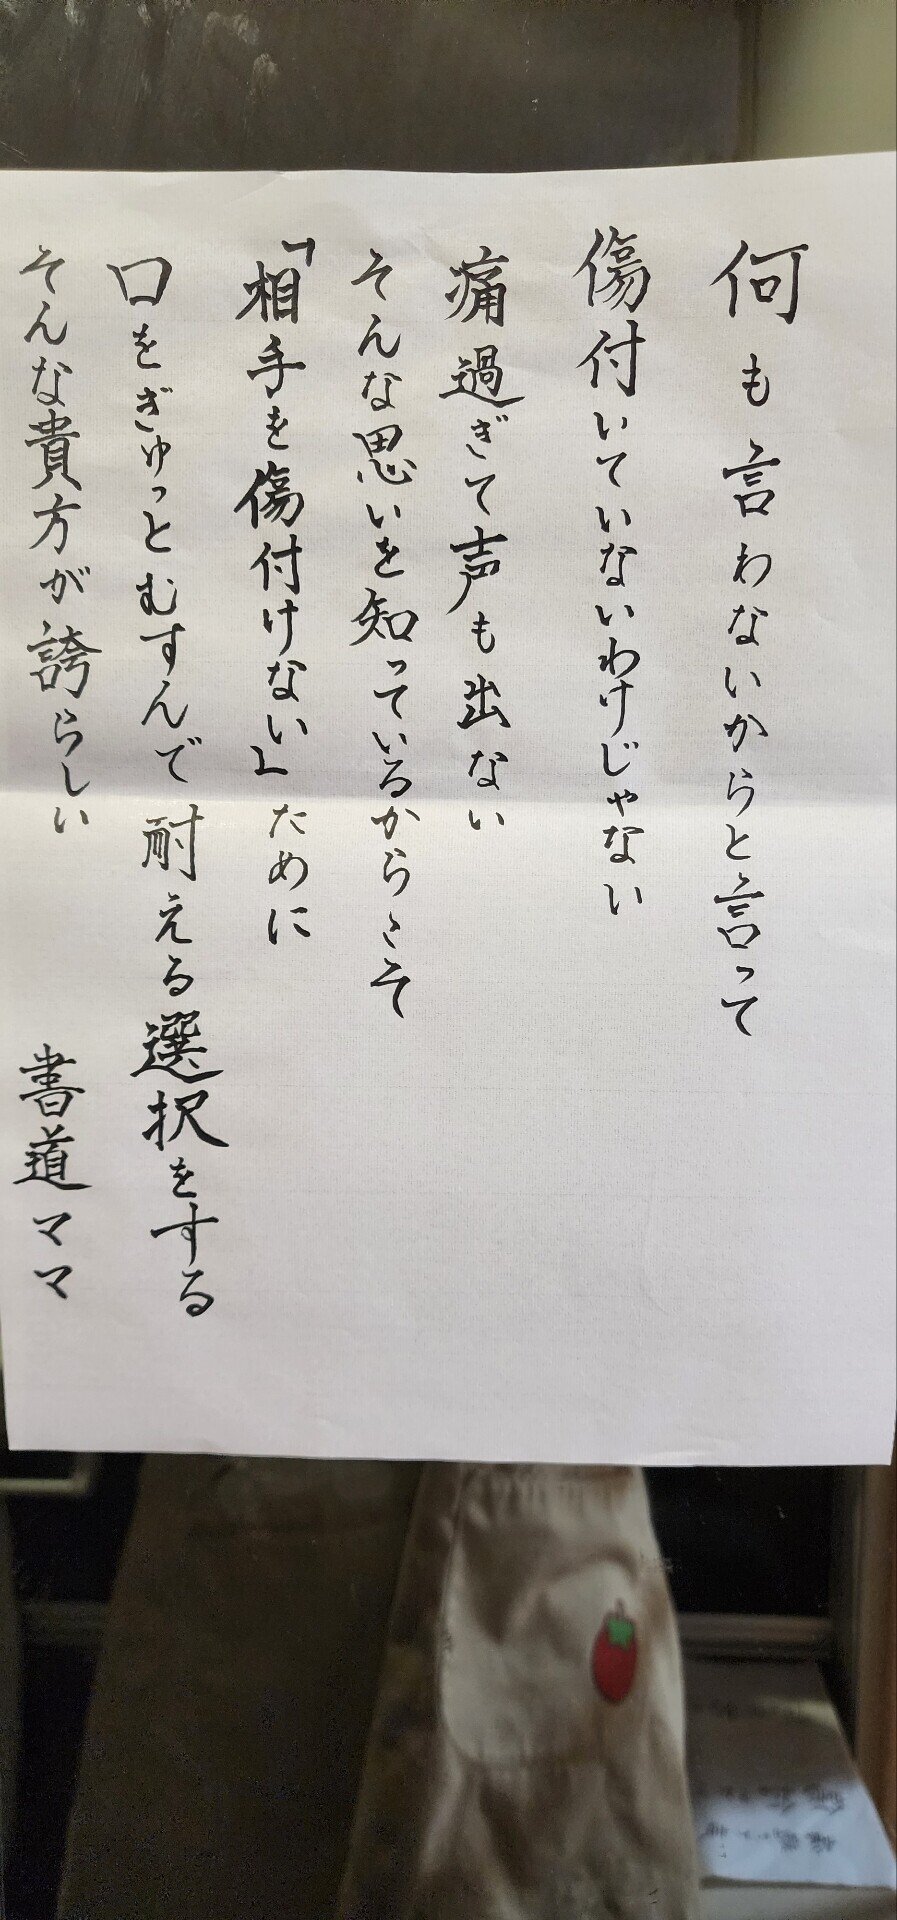 何も言わないからと言って
傷付いていないわけじゃない
痛過ぎて声も出ない
そんな思いを知っているからこそ
「相手を傷付けない」ために
口をぎゅっとむすんで耐える選択をする
そんな貴方が誇らしい
書道ママ